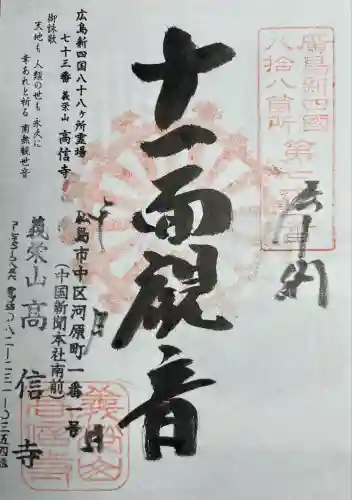 奉納
十一面観音
広島新四国八十八ケ所霊場
七十三番 義栄山 高信寺
御詠歌
天地も 人類の世も 永久に
幸あれと祈る 南無観世音
広島市中区河原町一番一号
(中国新聞本社南前)
義栄山高信寺
廣島新四國
八拾八箇所
月
日